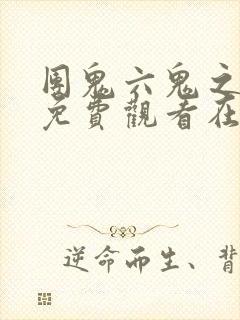 團鬼六鬼之
免費觀看在
逆命而生、背